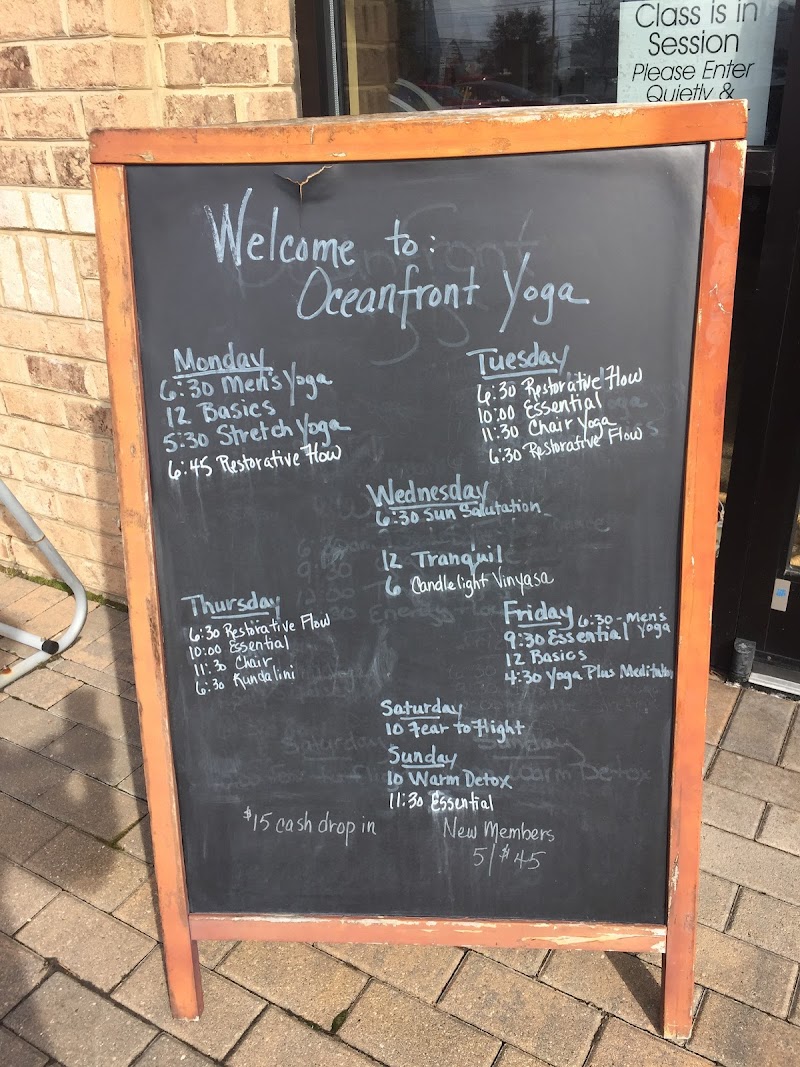 Class is in
Session
Please Enter
Quietly &
Welcome to:
Oceanfront Yoga
Monday
6:30 Men's Yoga
12 Basics
5:30 Stretch Yoga
6:45 Restorative Flow
Tuesday
6:30 Restorative Flow
10:00 Essential
11:30 Chair Yoga
6:30 Restorative Flow
Wednesday
6:30 Sun Salutation
12 Tranquil
6 Candlelight Vinyasa
Thursday
6:30 Restorative Flow
10:00 Essential
11:30 Chair
6:30 Kundalini
Friday 6:30 - Men's
9:30 Essential Yoga
12 Basics
4:30 Yoga Plus Meditation
Saturday
10 Fear to Flight
Sunday
10 Warm Detox
11:30 Essential
$15 cash drop in
New Members
5/$45